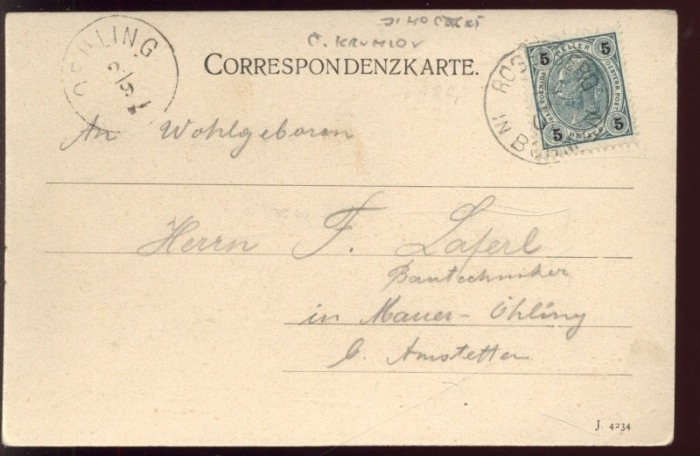 JIHOČESKÝ
Č. KRUMLOV
CORRESPONDENZKARTE.
OEHLING
5 HELLER 5
5 HELLER 5
ROS
IN BÖHM
An Wohlgeboren
Herrn F. Laferl
Bautechniker
in Mauer-Öhling
b. Amstetten
J. 4234